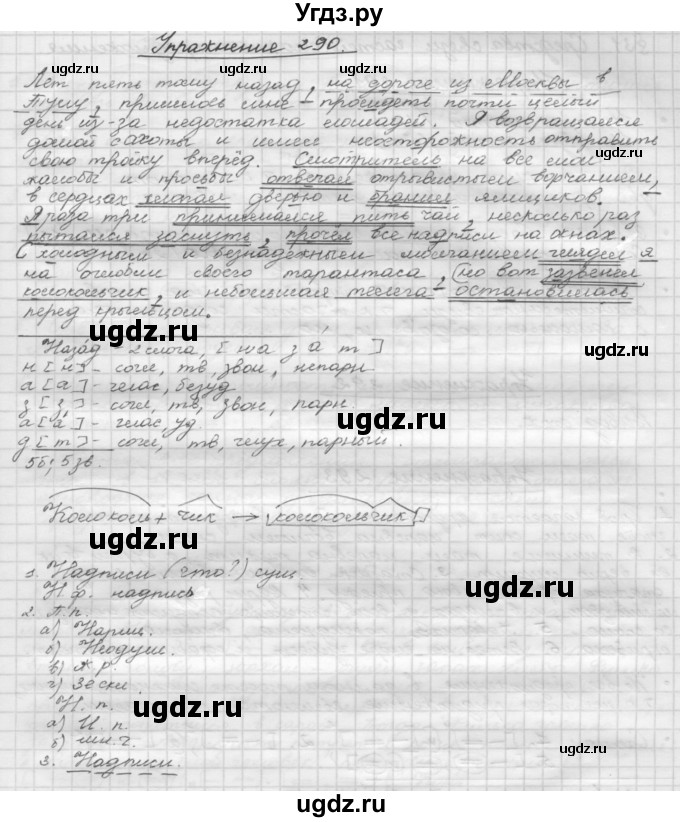 Угдз.ру
Упражнение 290.
Лет пять тому назад, на дороге из Москвы в
Тулу, пришлось мне просидеть почти целый
день из-за недостатка лошадей. Я возвращался
домой с охоты и имел неосторожность отправить
свою тройку вперёд. Смотритель на все мои
жалобы и просьбы отвечал отрывистым ворчанием,
в сердцах хлопал дверью и бранил ямщиков.
Я раза три принимался пить чай, несколько раз
пытался заснуть, прочёл все надписи на окнах.
С холодным и безнадежным молчанием глядел я
на оглобли своего тарантаса, (но вот зазвенел
колокольчик, и небольшая телега остановилась
перед крыльцом.
Назад - 2 слога, [н а з а́ т]
н [н] - согл, тв, звон, непарн
а [а] - глас, безуд
з [з] - согл, тв, звон, парн.
а [а] - глас, уд
д [т] - согл, тв, глух, парный.
5б; 5 зв.
Колоколь + чик → колокольчик
1. Надписи (что?) сущ.
Н.ф. надпись
2. П.п.
а) Нариц.
б) Неодуш.
в) Ж.р.
г) 3е скл.
Н. п.
а) И. п.
б) мн.ч.
3. Надписи.
ugdz.ru
ugdz.ru
ugdz.ru
ugdz.ru
ugdz.ru
ugdz.ru
ugdz.ru
ugdz.ru
ugdz.ru
ugdz.ru
ugdz.ru
ugdz.ru
ugdz.ru
ugdz.ru